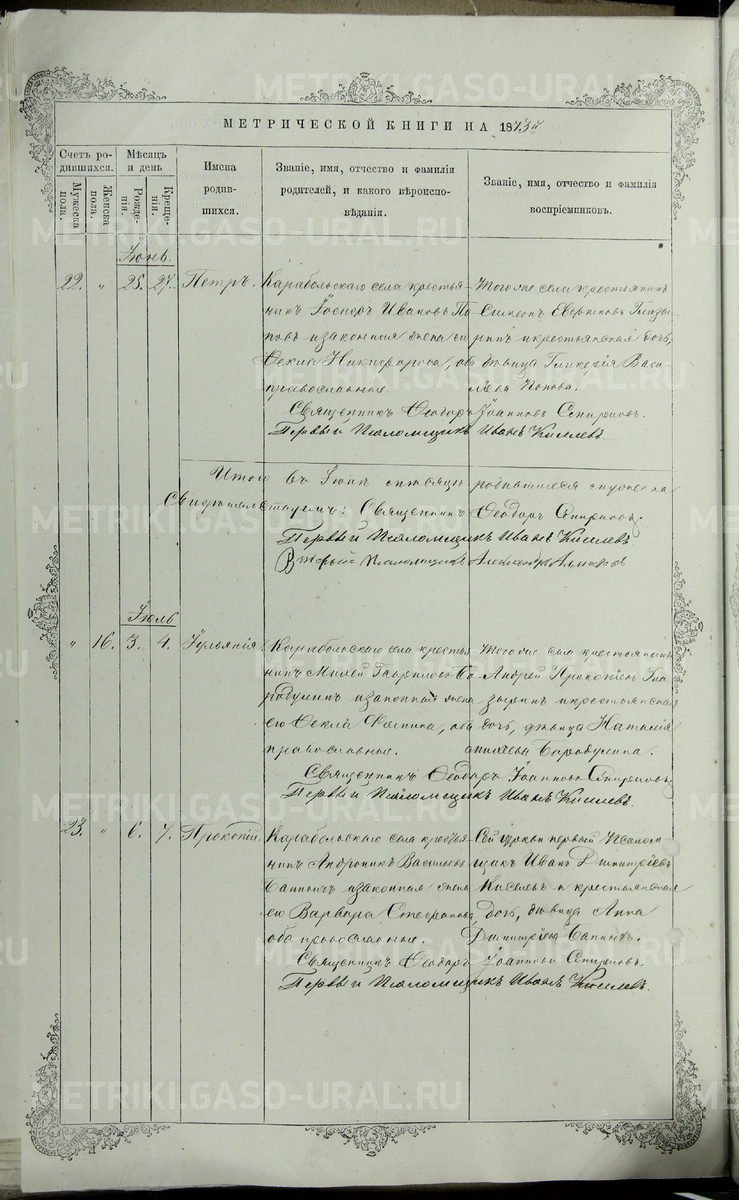 МЕТРИЧЕСКОЙ КНИГИ НА 1873й
Счетъ родившихся.
Мужеска пола.
Женска пола.
Мѣсяцъ и день
Рожденія.
Крещенія.
Имена родившихся.
Званіе, имя, отчество и фамилія родителей, и какого вѣроисповѣданія.
Званіе, имя, отчество и фамилія воспріемниковъ.
Іюнь.
22. " 25. 27. Петръ.
Карабольскаго села крестья-
нинъ Іосифъ Ивановъ По-
повъ и законная жена его
Ѳекла Никифорова, оба
православные.
Того же села крестьянинъ
Симеонъ Глазы-
ринъ и крестьянская дочь,
дѣвица Гликерія Васи-
льева Попова.
Священникъ Ѳеодоръ Іоанновъ Спиринъ.
Первый Псаломщикъ Иванъ Киселевъ
Итого въ Іюнѣ мѣсяцѣ родившихся
Свидѣтельствуемъ: Священникъ Ѳеодоръ Спиринъ.
Первый Псаломщикъ Иванъ Киселевъ
Вторый Псаломщикъ Александръ
Іюль
" 16. 3. 4. Іуліанія.
Карабольскаго села крестья-
нинъ Михей Гавриловъ Ба-
робулинъ и законная жена
его Ѳекла Фокина, оба
православные.
Того же села крестьянинъ
Андрей Прокопіевъ Гла-
зыринъ и крестьянская
дочь, дѣвица Наталія
Баробулина.
Священникъ Ѳеодоръ Іоанновъ Спиринъ
Первый Псаломщикъ Иванъ Киселевъ.
23. " 6. 7. Прокопій.
Карабольскаго села крестья-
нинъ Андроникъ Васильевъ
Банныхъ и законная жена
его Варвара Стефанова,
оба православные.
Сей церкви первый Псалом-
щикъ Иванъ Димитріевъ
Киселевъ и крестьянская
дочь, дѣвица Анна
Димитріева Банныхъ.
Священникъ Ѳеодоръ Іоанновъ Спиринъ.
Первый Псаломщикъ Иванъ Киселевъ.
METRIKI.GASO-URAL.RU